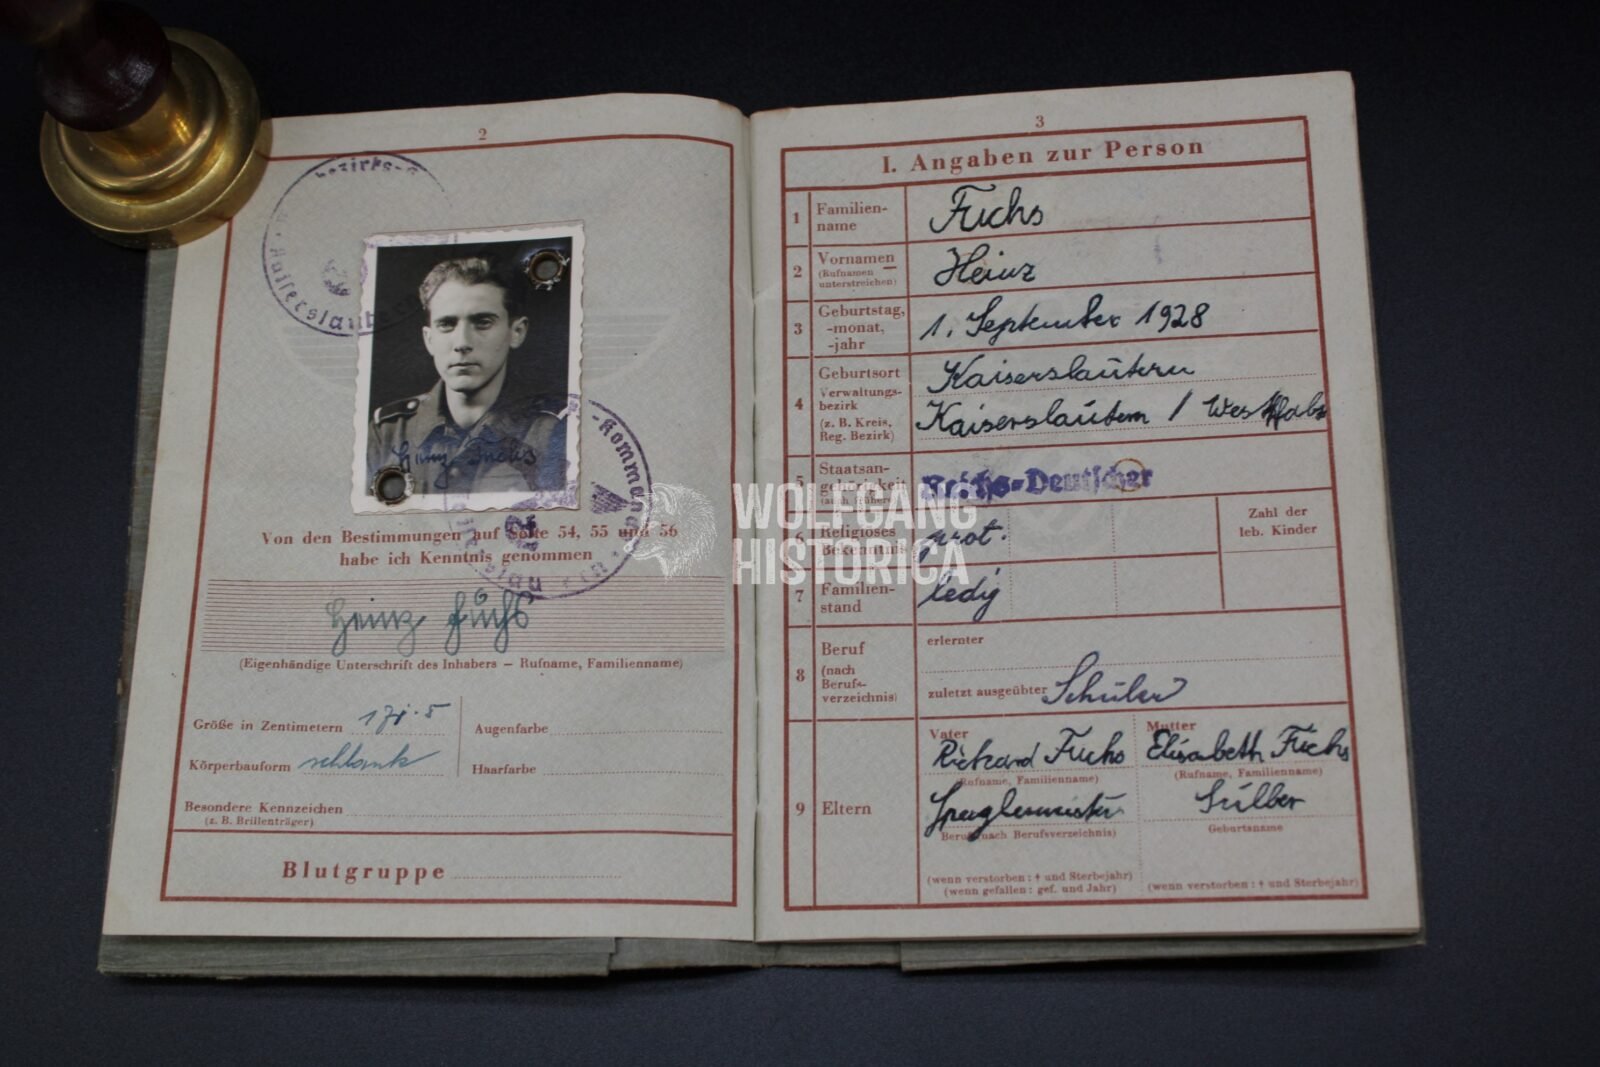 2
bezirks-
Kaiserslaut
Heinz Fuchs
-Kommand
slau
Von den Bestimmungen auf Seite 54, 55 und 56
habe ich Kenntnis genommen
Heinz Fuchs
(Eigenhändige Unterschrift des Inhabers – Rufname, Familienname)
Größe in Zentimetern
Augenfarbe
Körperbauform schlank
Haarfarbe
Besondere Kennzeichen
(z. B. Brillenträger)
Blutgruppe
3
I. Angaben zur Person
1 Familien-
name
Fuchs
2 Vornamen
(Rufnamen
unterstreichen)
Heinz
3 Geburtstag,
-monat,
-jahr
1. September 1928
4 Geburtsort
Verwaltungs-
bezirk
(z. B. Kreis,
Reg. Bezirk)
Kaiserslautern
Kaiserslautern /
5 Staatsan-
gehörigkeit
(auch frühere)
Reichs-Deutscher
6 Religiöses
Bekenntnis
prot.
Zahl der
leb. Kinder
7 Familien-
stand
ledig
8 Beruf
(nach
Berufs-
verzeichnis)
erlernter
zuletzt ausgeübter Schüler
9 Eltern
Vater
Richard Fuchs
(Rufname, Familienname)
Spenglermeister
Beruf (nach Berufsverzeichnis)
(wenn verstorben: † und Sterbejahr)
(wenn gefallen: gef. und Jahr)
Mutter
Elisabeth Fuchs
(Rufname, Familienname)
Geburtsname
(wenn verstorben: † und Sterbejahr)
WOLFGANG
HISTORICA